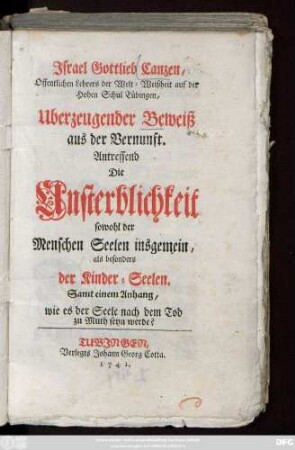 Israel Gottlieb Canzen,
Offentlichen Lehrers der Welt-Weißheit auf der
Hohen Schul Tübingen,
Uberzeugender Beweiß
aus der Vernunft.
Antreffend
Die
Unsterblichkeit
sowohl der
Menschen Seelen insgemein,
als besonders
der Kinder-Seelen.
Samt einem Anhang,
wie es der Seele nach dem Tod
zu Muth seyn werde?
TUBINGEN,
Verlegts Johann Georg Cotta.
1741.
DFG